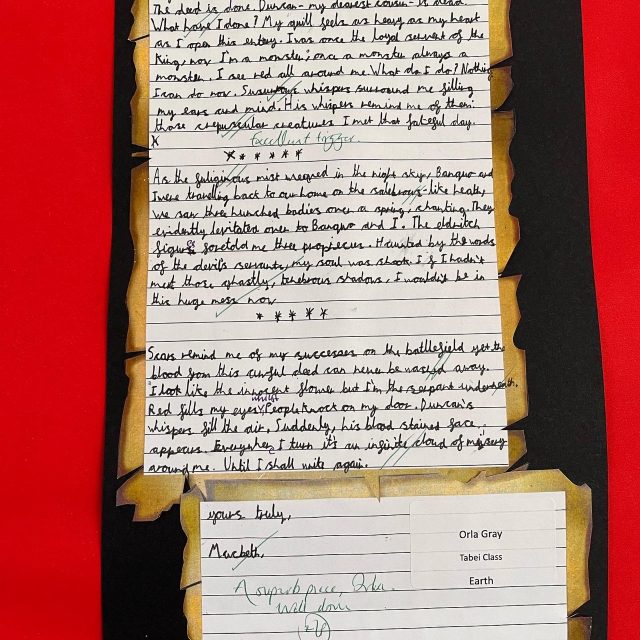 The deed is done. Duncan - my dearest cousin - is dead.
What have I done? My quill feels as heavy as my heart
as I open this entry. I was once the loyal servant of the
King; now I'm a monster; once a monster always a
monster. I see red all around me. What do I do? Nothing
I can do now. Susurrous whispers surround me filling
my ears and mind. His whispers remind me of them:
those crepuscular creatures I met that fateful day.
X Excellent trigger.
* * * * * *
As the fuliginous mist weaved in the night sky, Banquo and
I were travelling back to our home on the salebrous-like heath,
we saw three hunched bodies over a spring, chanting. They
evidently levitated over to Banquo and I. The eldritch
figures foretold me three prophecies. Haunted by the words
of the devil's servants, my soul was shook. If I hadn't
meet those ghastly, tenebrous shadows, I wouldn't be in
this huge mess now
* * * * *
Scars remind me of my successes on the battlefield yet the
blood from this awful deed can never be washed away.
I look like the innocent flower but I'm the serpant underneath.
Red fills my eyes whilst People knock on my door. Duncan's
whispers fill the air. Suddenly, his blood stained face
appears. Everywhere I turn it's an infinite cloud of misery
around me. Until I shall write again.
yours truly,
Macbeth.
A superb piece, Orla.
Well done
Orla Gray
Tabei Class
Earth